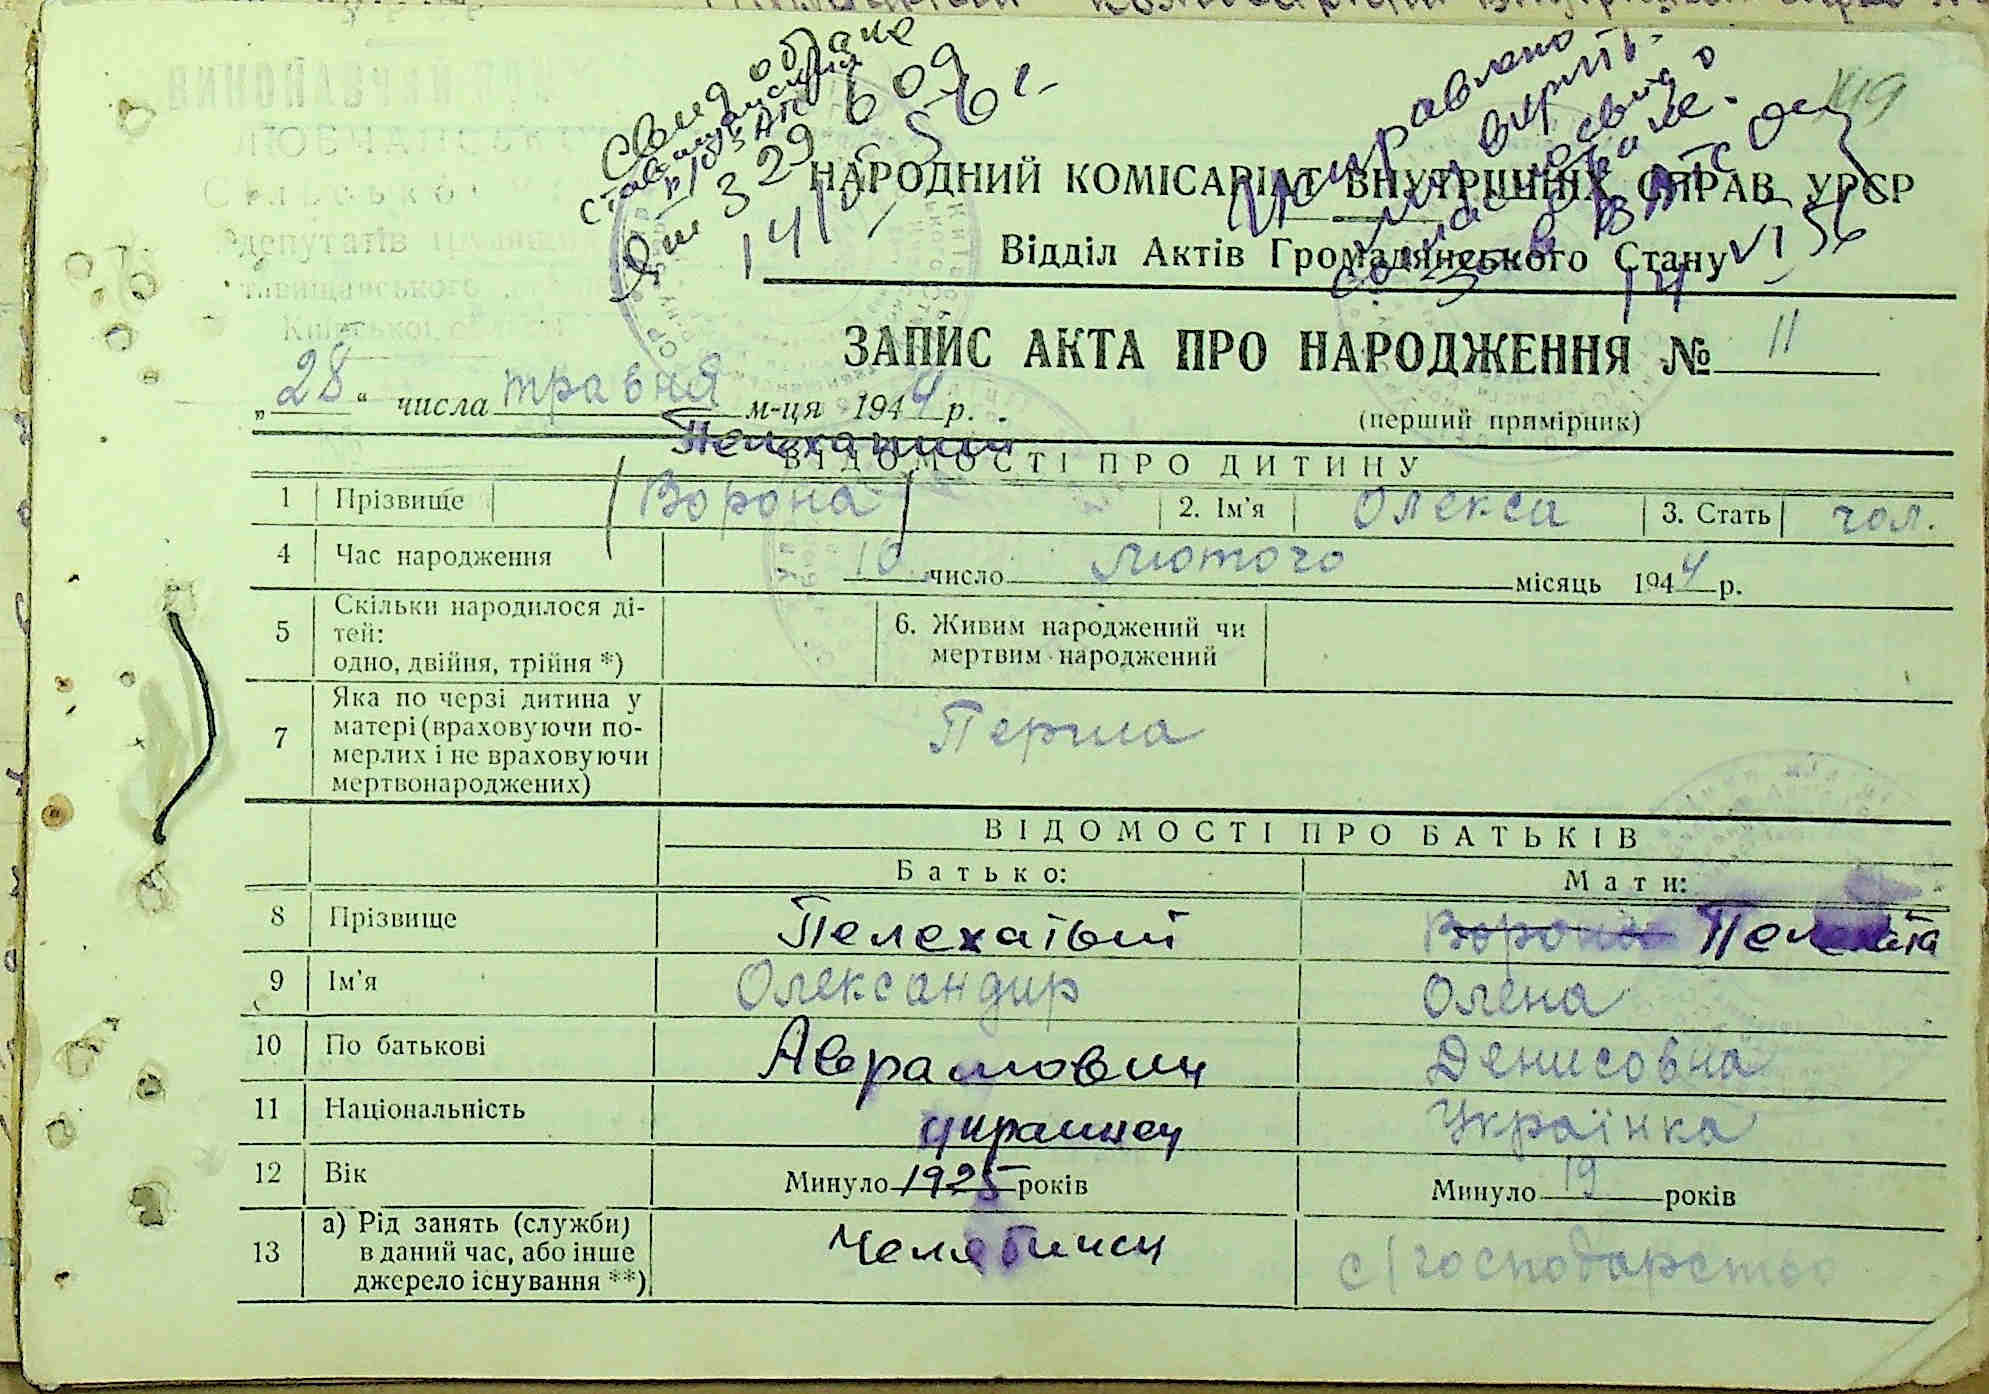 149
Свид обране
329609
14/
НАРОДНИЙ КОМІСАРІАТ ВНУТРІШНІХ СПРАВ УРСР
Відділ Актів Громадянського Стану
14 VI 56
ЗАПИС АКТА ПРО НАРОДЖЕННЯ № 11
„28“ числа травня м-ця 1944 р.
(перший примірник)
ВІДОМОСТІ ПРО ДИТИНУ
1 Прізвище (Ворона) 2. Ім'я Олекса 3. Стать чол.
4 Час народження 10 число лютого місяць 1944 р.
5 Скільки народилося ді-
тей:
одно, двійня, трійня *)
6. Живим народжений чи
мертвим народжений
7 Яка по черзі дитина у
матері (враховуючи по-
мерлих і не враховуючи
мертвонароджених)
Перша
ВІДОМОСТІ ПРО БАТЬКІВ
Батько: Мати:
8 Прізвище Пелехатый Ворона Пелехата
9 Ім'я Олександир Олена
10 По батькові Аврамович Денисовна
11 Національність украинец Українка
12 Вік Минуло 1925 років Минуло 19 років
13 а) Рід занять (служби)
в даний час, або інше
джерело існування **)
Челябинск с/господарство